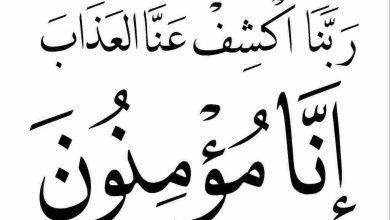 رَبَّنَا اكْشِفْ عَنَّا الْعَذَابَ
إِنَّا مُؤْمِنُونَ